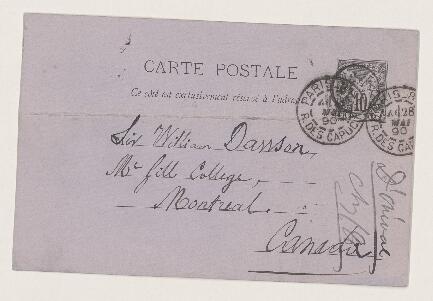 CARTE POSTALE
Ce côté est exclusivement réservé à l'adresse
PARIS
MAI
90
R. DES CAPUC
10
28
MAI
90
R. DES CAP
Sir William Dawson,
McGill College,
Montreal.
Canada